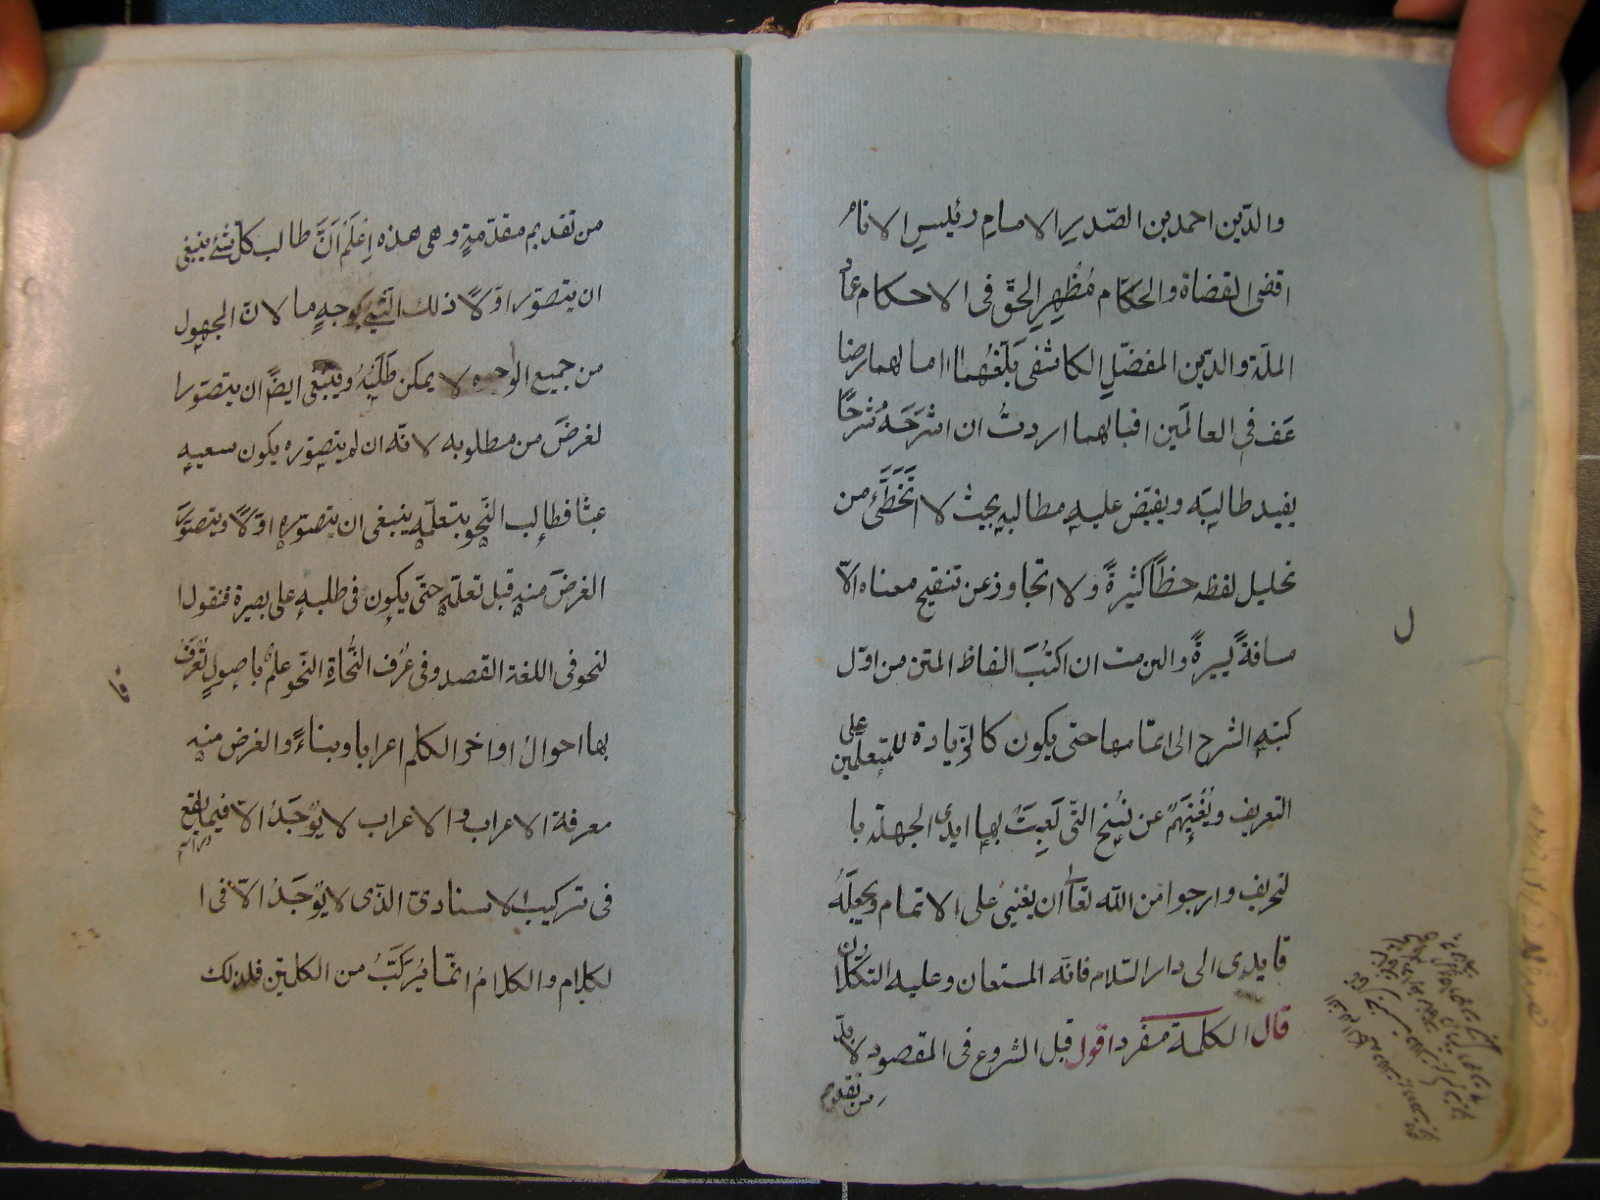 والدّين احمد بن الصّدر الامام رئيس الانام
اقضى القضاة والحكّام مُظهِرِ الحقّ فى الاحكام عماد
الملّة والدّين المفضّلِ الكاشفى بَلَّغهُما اما لهما رضا
عَف فى العالَمين اقبالهما اردتُ ان اشرَحَهُ شرحًا
يفيد طالبيَه ويفيّض عليهِ مطالبهِ بحيث لا اتَخَطَّئ من
تحليل لفظه حظاً كثيرةً ولا اتجاوز عن تنقيح معناه الاّ
مسافةً يسيرةً والتزمت ان اكتُبَ الفاظ المتن من اوّل
كتبهِ الشرح الى اتمامها حتى يكون كالزّيادة للمتعلّمين على
التعريف ويُغْنِيَهُمْ عن نُسَخِ التّى لَعِبَتْ بها ايدى الجهلة با
لتحريف وارجوا من اللّه تعا ان يغنينى على الاتمام ويجعلَهُ
قا يدى الى دار السّلام فانّه المستعان وعليه التكلان
قال الكلمة مفرد اقول قبل الشروع فى المقصود لا بدّ
من تقديم
ل
من تقديم مقدّمةٍ وهى هذه اِعْلَمْ اَنَّ طالب كل شئ ينبغى
ان يتصوّر اوّلاً ذلك الشئ بوجهٍ ما لانّ المجهول
من جميع الوجوه لا يمكن طَلَبُهُ وينبغى ايضًا ان يتصوّر ا
لغرضَ من مطلوبه لانّه ان لم يتصوّره يكون سعيه
عبثا فطالب النّحو بتعلّمه ينبغى ان يتصوّره اوّلاً ويتصوّرَ
الغرضَ منهِ قبل تعلّمه حتّى يكون فى طلبه على بصيرة فنقول ا
لنحو فى اللغة القصد وفى عُرف النُّحاةِ النّحو علمٌ باصولٍ تُعْرَفُ
بها احوالُ اواخر الكلم اعرابا وبناءً والغرض منه
معرفة الاعراب والاعراب لا يُوْجَدُ الاّ فيما يقع
فى تركيب الاسنادىّ الذّى لا يُوْجَدُ الاّ فى ا
لكلام والكلامُ انّما يُرَكَّبُ من الكلمتين فلذلك